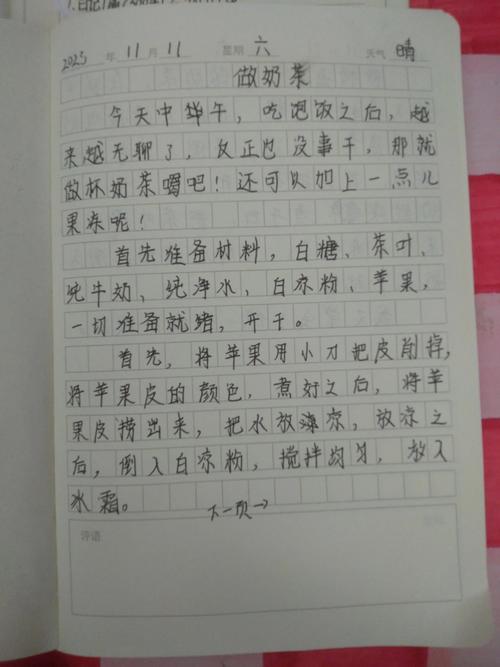 2023 年 11 月 11 星期 六 天气 晴
做奶茶
今天中午，吃饱饭之后，越
来越无聊了，反正也没事干，那就
做杯奶茶喝吧！还可以加上一点儿
果冻呢！
首先准备材料，白糖、茶叶、
纯牛奶、纯净水、白凉粉、苹果，
一切准备就绪，开干。
首先，将苹果用小刀把皮削掉，
将苹果皮的颜色，煮好之后，将苹
果皮捞出来，把水放凉，放凉之
后，倒入白凉粉，搅拌均匀，放入
冰霜。
下一页→
评语